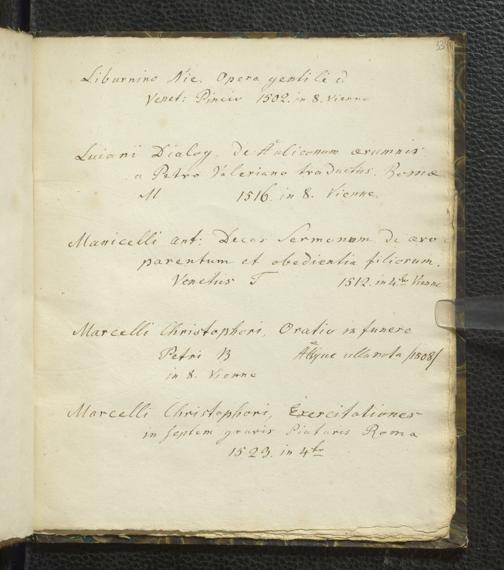 Liburnino Nic. Opera gentile è
Venet: Pincio 1502. in 8. Vienna
Luiani Dialog. de Aulicorum ærumnis
a Petro Valeriano traductus. Romæ
M 1516. in 8. Vienna.
Manicelli ant: Decas Sermonum de
parentum et obedientia filiorum.
Venetiis T 1512. in 4to Vienna
Marcelli Christophori, Oratio in funere
Petri B Absque ulla nota /1508/
in 8. Vienna
Marcelli Christophori, Exercitationes
in septem Roma
1523. in 4to